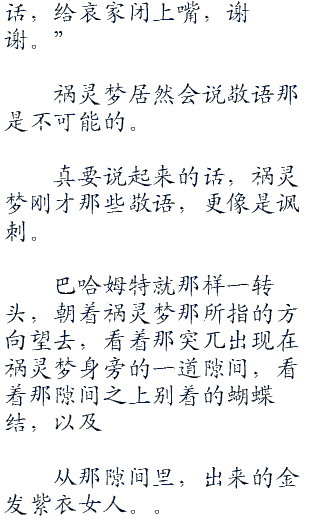 话，给哀家闭上嘴，谢
谢。”
祸灵梦居然会说敬语那
是不可能的。
真要说起来的话，祸灵
梦刚才那些敬语，更像是讽
刺。
巴哈姆特就那样一转
头，朝着祸灵梦那所指的方
向望去，看着那突兀出现在
祸灵梦身旁的一道隙间，看
着那隙间之上别着的蝴蝶
结，以及
从那隙间里，出来的金
发紫衣女人。。